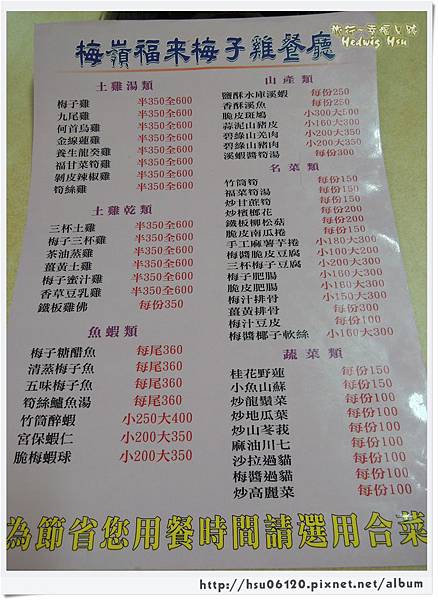 旅行~幸福足跡
Hedwig Hsu
梅嶺福来梅子雞餐廳
土雞湯類
梅子雞 半350全600
九尾雞 半350全600
何首烏雞 半350全600
金線蓮雞 半350全600
養生龍葵雞 半350全600
福甘菜筍雞 半350全600
剝皮辣椒雞 半350全600
筍絲雞 半350全600
土雞乾類
三杯土雞 半350全600
梅子三杯雞 半350全600
茶油蒸雞 半350全600
薑黃土雞 半350全600
梅子蜜汁雞 半350全600
香草豆乳雞 半350全600
鐵板雞佛 每份350
魚蝦類
梅子糖醋魚 每尾360
清蒸梅子魚 每尾360
五味梅子魚 每尾360
筍絲鱸魚湯 每尾360
竹筒醉蝦 小250大400
宮保蝦仁 小200大350
脆梅蝦球 小200大350
山產類
鹽酥水庫溪蝦 每份250
香酥溪魚 每份250
脆皮斑鳩 小300大500
蒜泥山豬皮 小160大300
碧綠山羌肉 小200大350
碧綠山豬肉 小200大350
溪蝦醬筍湯 每份300
名菜類
竹筒筍 每份150
福菜筍湯 每份150
炒甘蔗筍 每份150
炒檳榔花 每份200
鐵板柳松菇 每份200
脆皮南瓜捲 每份150
手工麻薯芋捲 小180大300
梅醬脆皮豆腐 小100大200
三杯梅子豆腐 小120大200
梅子肥腸 小160大300
脆皮肥腸 小160大300
梅汁排骨 小150大300
薑黃排骨 每份300
梅汁豆皮 每份100
梅醬椰子軟絲 小160大300
蔬菜類
桂花野蓮 每份150
小魚山蘇 每份150
炒龍鬚菜 每份100
炒地瓜葉 每份100
炒山苳莪 每份100
麻油川七 每份100
沙拉過貓 每份100
梅醬過貓 每份100
炒高麗菜 每份100
為節省您用餐時間請選用合菜
http://hsu06120.pixnet.net/album